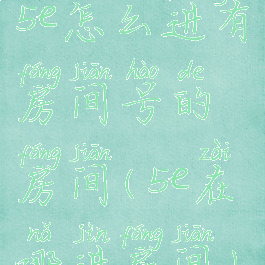 5e怎么进有
fáng jiān hào de
房间号的
fáng jiān zài
房间(5e在
nǎ jìn fáng jiān
哪进房间)